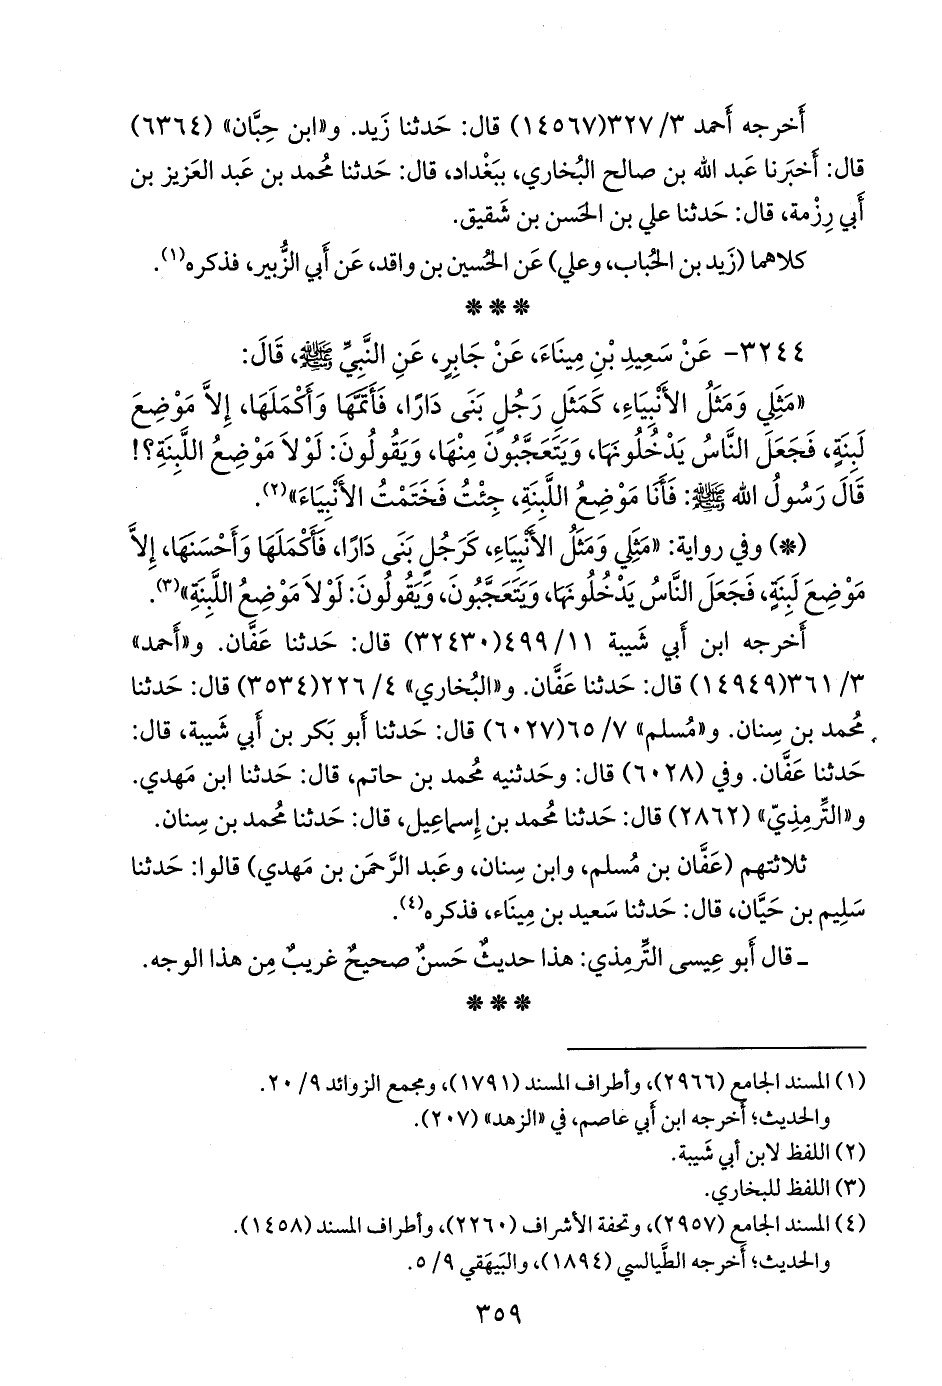 أَخرجه أَحمد ٣/ ٣٢٧(١٤٥٦٧) قال: حَدثنا زَيد. و«ابن حِبَّان» (٦٣٦٤)
قال: أَخبَرنا عَبد الله بن صالح البُخاري، ببَغْداد، قال: حَدثنا مُحمد بن عَبد العَزيز بن
أَبي رِزْمة، قال: حَدثنا علي بن الحَسن بن شَقيق.
كلاهما (زَيد بن الحُباب، وعلي) عَن الحُسين بن واقد، عَن أَبي الزُّبير، فذكره(١).
* * *
٣٢٤٤- عَنْ سَعِيدِ بْنِ مِينَاءَ، عَنْ جَابِرٍ، عَنِ النَّبِيِّ ﷺ، قَالَ:
«مَثَلِي وَمَثَلُ الأَنْبِيَاءِ، كَمَثَلِ رَجُلٍ بَنَى دَارًا، فَأَتَمَّهَا وَأَكْمَلَهَا، إِلاَّ مَوْضِعَ
لَبِنَةٍ، فَجَعَلَ النَّاسُ يَدْخُلُونَهَا، وَيَتَعَجَّبُونَ مِنْهَا، وَيَقُولُونَ: لَوْلاَ مَوْضِعُ اللَّبِنَةِ؟!
قَالَ رَسُولُ الله ﷺ: فَأَنَا مَوْضِعُ اللَّبِنَةِ، جِئْتُ فَخَتَمْتُ الأَنْبِيَاءَ»(٢).
(*) وفي رواية: «مَثَلِي وَمَثَلُ الأَنْبِيَاءِ، كَرَجُلٍ بَنَى دَارًا، فَأَكْمَلَهَا وَأَحْسَنَهَا، إِلاَّ
مَوْضِعَ لَبِنَةٍ، فَجَعَلَ النَّاسُ يَدْخُلُونَهَا، وَيَتَعَجَّبُونَ، وَيَقُولُونَ: لَوْلاَ مَوْضِعُ اللَّبِنَةِ»(٣).
أَخرجه ابن أَبي شَيبة ١١/ ٤٩٩(٣٢٤٣٠) قال: حَدثنا عَفَّان. و«أَحمد»
٣/ ٣٦١(١٤٩٤٩) قال: حَدثنا عَفَّان. و«البُخاري» ٤/ ٢٢٦(٣٥٣٤) قال: حَدثنا
مُحمد بن سِنان. و«مُسلم» ٧/ ٦٥(٦٠٢٧) قال: حَدثنا أَبو بَكر بن أَبي شَيبة، قال:
حَدثنا عَفَّان. وفي (٦٠٢٨) قال: وحَدثنيه مُحمد بن حاتم، قال: حَدثنا ابن مَهدي.
و«التِّرمِذيّ» (٢٨٦٢) قال: حَدثنا مُحمد بن إِسماعيل، قال: حَدثنا مُحمد بن سِنان.
ثلاثتهم (عَفَّان بن مُسلم، وابن سِنان، وعَبد الرَّحمَن بن مَهدي) قالوا: حَدثنا
سَلِيم بن حَيَّان، قال: حَدثنا سَعيد بن مِينَاء، فذكره(٤).
ـ قال أَبو عِيسى التِّرمِذي: هذا حديثٌ حَسنٌ صحيحٌ غريبٌ مِن هذا الوجه.
* * *
(١) المسند الجامع (٢٩٦٦)، وأطراف المسند (١٧٩١)، ومجمع الزوائد ٩/ ٢٠.
والحديث؛ أَخرجه ابن أَبي عاصم، في «الزهد» (٢٠٧).
(٢) اللفظ لابن أَبي شَيبة.
(٣) اللفظ للبخاري.
(٤) المسند الجامع (٢٩٥٧)، وتحفة الأشراف (٢٢٦٠)، وأطراف المسند (١٤٥٨).
والحديث؛ أَخرجه الطَّيالسي (١٨٩٤)، والبَيهَقي ٩/ ٥.
٣٥٩